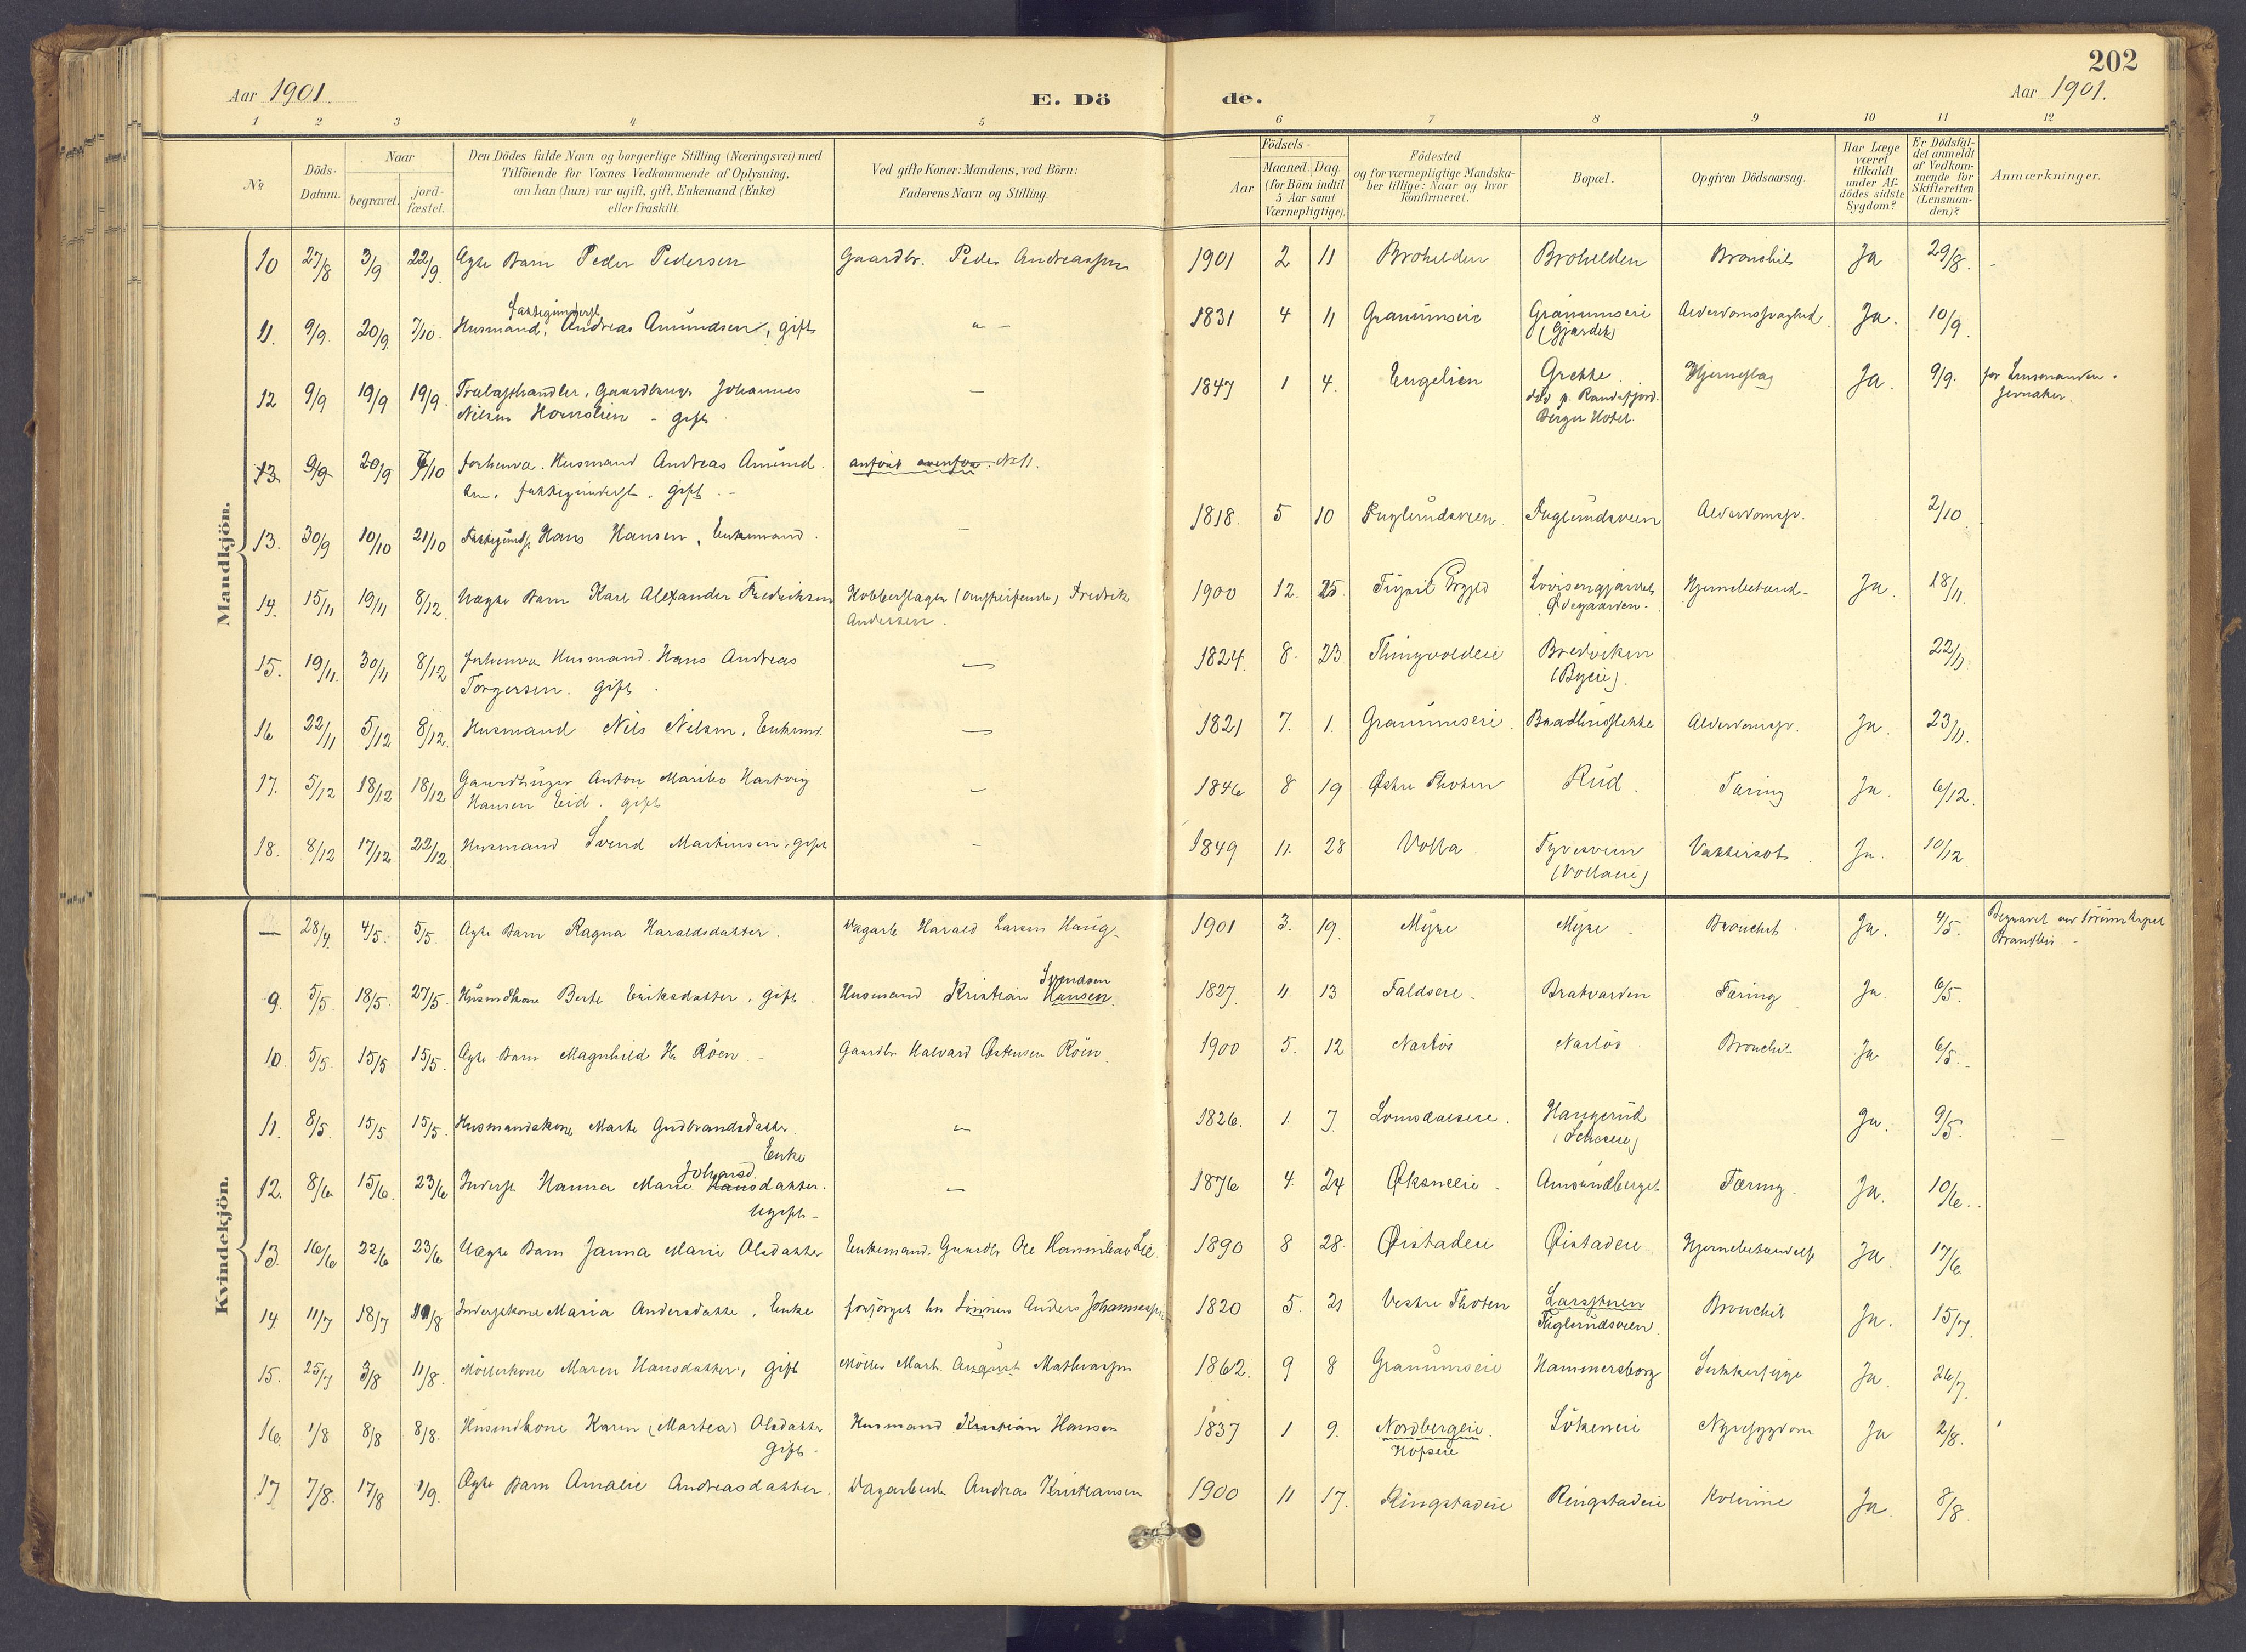 202
Aar 1901.
E. Dö
de.
Aar 1901.
1 2 3 4 5 6 7 8 9 10 11 12
No
Döds-
Datum.
Naar
begravet.
jord-
fæstet.
Den Dödes fulde Navn og borgerlige Stilling (Næringsvei) med
Tilföiende for Voxnes Vedkommende af Oplysning,
om han (hun) var ugift, gift, Enkemand (Enke)
eller fraskilt.
Ved gifte Koner: Mandens, ved Börn:
Faderens Navn og Stilling.
Födsels-
Aar
Maaned. Dag.
(for Börn indtil
5 Aar samt
Værnepligtige).
Födested
og for værnepligtige Mandska-
ber tillige: Naar og hvor
konfirmeret.
Bopæl.
Opgiven Dödsaarsag.
Har Læge
været
tilkaldt
under Af-
dödes sidste
Sygdom?
Er Dödsfal-
det anmeldt
af Vedkom-
mende for
Skifteretten
(Lensman-
den)?
Anmærkninger.
Mandkjön.
10 27/8 3/9 22/9. Ægte Barn Peder Pedersen Gaardbr. Peder Andreassen 1901 2 11 Brohelden Brohelden Bronchit Ja 29/8.
fattigunderst.
11. 9/9 20/9 7/10. Husmand, Andreas Amundsen, gift 1831 4 11 Granumseie Granumseie Alderdomssvaghed. Ja. 10/9
(Gjærdet)
12 9/9 19/9 19/9. Trælasthandler, Gaardbruger Johannes 1847 1 4. Engelien Grette Hjerneslag Ja. 9/9. for Lensmanden
Nilsen - gift død p. Randsfjord. Jevnaker.
Berger Hotel.
13 9/9 20/9 7/10 forhenv. Husmand Andreas Amund- anført ovenfor. No 11.
sen, fattigunderst. gift. -
13. 30/9 10/10 21/10 Fattigunds. Hans Hansen, Enkemand. 1818. 5 10 Fuglerudsveen. Fuglerudsveen Alderdomssv. 2/10
14. 15/11 19/11 8/12 Uægte Barn Karl Alexander Fredriksen Kobberslager (omstreifende) Fredrik 1900 12. 25. Bryged Lovisengjærdet Hjernebetænd- Ja. 18/11.
Andersen. Ødegaarden.
15. 19/11. 30/11 8/12 forhenv. Husmand. Hans Andreas 1824. 8. 23 Thingvoldeie Bredviken 22/11.
Torgersen. gift. (Byeie).
16 22/11 5/12 8/12. Husmand Nils Nilsen, Enkemd. 1821 7. 1. Granumseie. Alderdomssv. Ja. 23/11.
17. 5/12 18/12 18/12 Gaardbruger Anton Maribo Hartvig 1846 8 19 Østre Thoten Rud. Tæring Ja. 6/12.
Hansen Eid. gift
18. 8/12 17/12 22/12. Husmand Svend Martinsen, gift 1849 11. 28 Volla. Vattersot. Ja. 10/12.
(Vollaeie)
Kvindekjön.
— 28/4 4/5. 5/5. Ægte Barn Ragna Haraldsdatter. Dagarb Harald Larsen Haug. 1901 3. 19. Myre Myre. Bronchit. Ja. 4/5. Begravet ved Sørum Kapel
Brandbu. -
Svendsen
9. 5/5. 18/5. 27/5. Husmdkone Berte Eriksdatter, gift. Husmand Kristian Hansen. 1827. 11. 13 Faldseie. Brakvarden Tæring Ja. 6/5.
10. 5/5. 15/5 15/5. Ægte Barn Magnhild H. Röen. - Gaardbr Halvard Østensen Röen. 1900 5. 12 Narlös Narlös. Bronchit Ja 6/5.
11. 8/5. 15/5 15/5. Husmandskone Marte Gudbrandsdatter. 1826. 1. 7. Lomsdalseie. Haugerud Ja. 9/5.
Enke
12. 8/6 15/6. 23/6 Inderst Hanna Marie Hansdatter. 1876 4. 24 Øksneeie Amundberget Tæring. Ja. 10/6.
Johansd.
Ugift -
13. 16/6 22/6 23/6 Uægte Barn Janna Marie Olsdatter Enkemand. Gaardbr Ole Hannibal Lie. 1890 8 28. Øistadeie Øistadeie Hjernebetændelse Ja. 17/6.
14. 11/7 18/7 11/8 Inderstkone Maria Andersdatter, Enke forsørget hos Sønnen Anders Johannessen 1820 5. 21 Vestre Thoten Larsstuen Bronchit Ja. 15/7.
Fuglerudsveen
15. 25/7 3/8 11/8. Möllerkone Maren Hansdatter, gift Möller Mart. August Mathiassen 1862. 9 8 Granumseie Hammersborg Sukkersyge Ja. 26/7.
16. 1/8 8/8 8/8. Husmdkone Karen (Martea) Olsdatter Husmand Kristian Hansen 1837 1 9. Nordbergeie. Lökeneie Nyresygdom Ja 2/8.
gift - Hofseie
17 7/8. 17/8 1/9. Ægte Barn Amalie Andreasdatter. Dagarbeid. Andreas Kristiansen 1900 11 17. Ringstadeie Ringstadeie Kolerine Ja. 8/8.